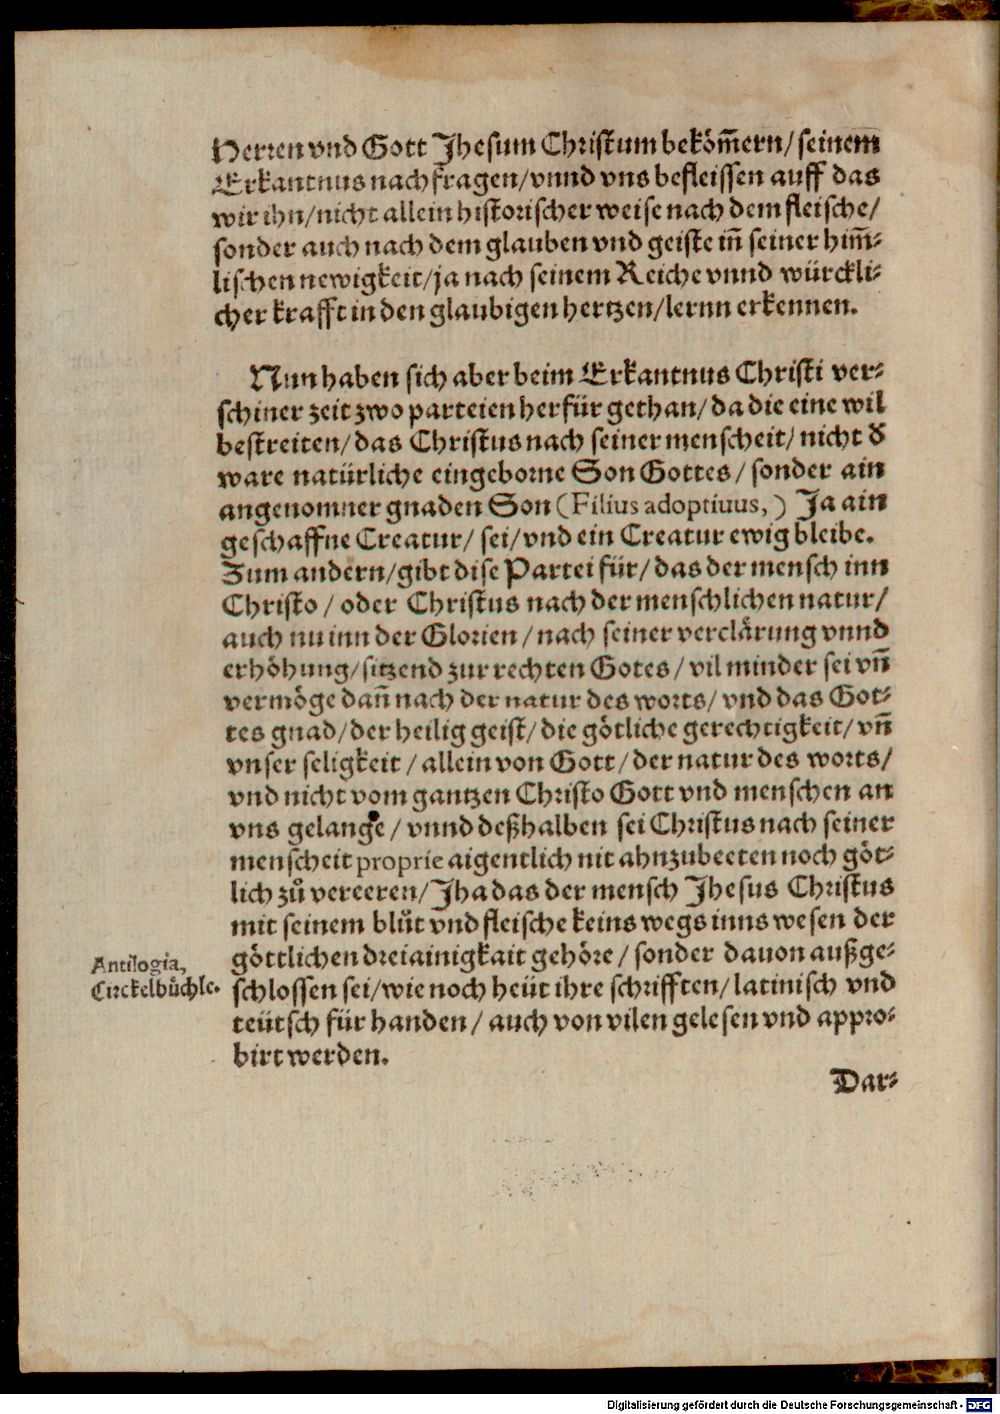 Herren vnd Gott Jhesum Christum beköm̃ern/ seinem
Erkantnus nachfragen/ vnnd vns befleissen auff das
wir ihn/ nicht allein historischer weise nach dem fleische/
sonder auch nach dem glauben vnd geiste iñ seiner him̃-
lischen newigkeit/ ja nach seinem Reiche vnnd würckli-
cher krafft in den glaubigen hertzen/ lernn erkennen.
Nun haben sich aber beim Erkantnus Christi ver-
schiner zeit zwo parteien herfür gethan/ da die eine wil
bestreiten/ das Christus nach seiner menscheit/ nicht d̕
ware natürliche eingeborne Son Gottes/ sonder ain
angenomner gnaden Son (Filius adoptiuus,) Ja ain
geschaffne Creatur/ sei/ vnd ein Creatur ewig bleibe.
Zum andern/ gibt dise Partei für/ das der mensch inn
Christo/ oder Christus nach der menschlichen natur/
auch nu inn der Glorien/ nach seiner verclärung vnnd
erhöhung/ sitzend zur rechten Gotes/ vil minder sei vn̄
vermöge dañ nach der natur des worts/ vnd das Got-
tes gnad/ der heilig geist/ die götliche gerechtigkeit/ vn̄
vnser seligkeit/ allein von Gott/ der natur des worts/
vnd nicht vom gantzen Christo Gott vnd menschen an
vns gelange/ vnnd deßhalben sei Christus nach seiner
menscheit proprie aigentlich nit ahnzubeeten noch göt-
lich zů vereeren/ Jha das der mensch Jhesus Christus
mit seinem blůt vnd fleische keins wegs inns wesen der
göttlichen dreiainigkait gehöre/ sonder dauon außge-
schlossen sei/ wie noch heüt ihre schrifften/ latinisch vnd
teütsch für handen/ auch von vilen gelesen vnd appro-
birt werden.
Antilogia,
Circkelbůchle.
Dar-
Digitalisierung gefördert durch die Deutsche Forschungsgemeinschaft - DFG